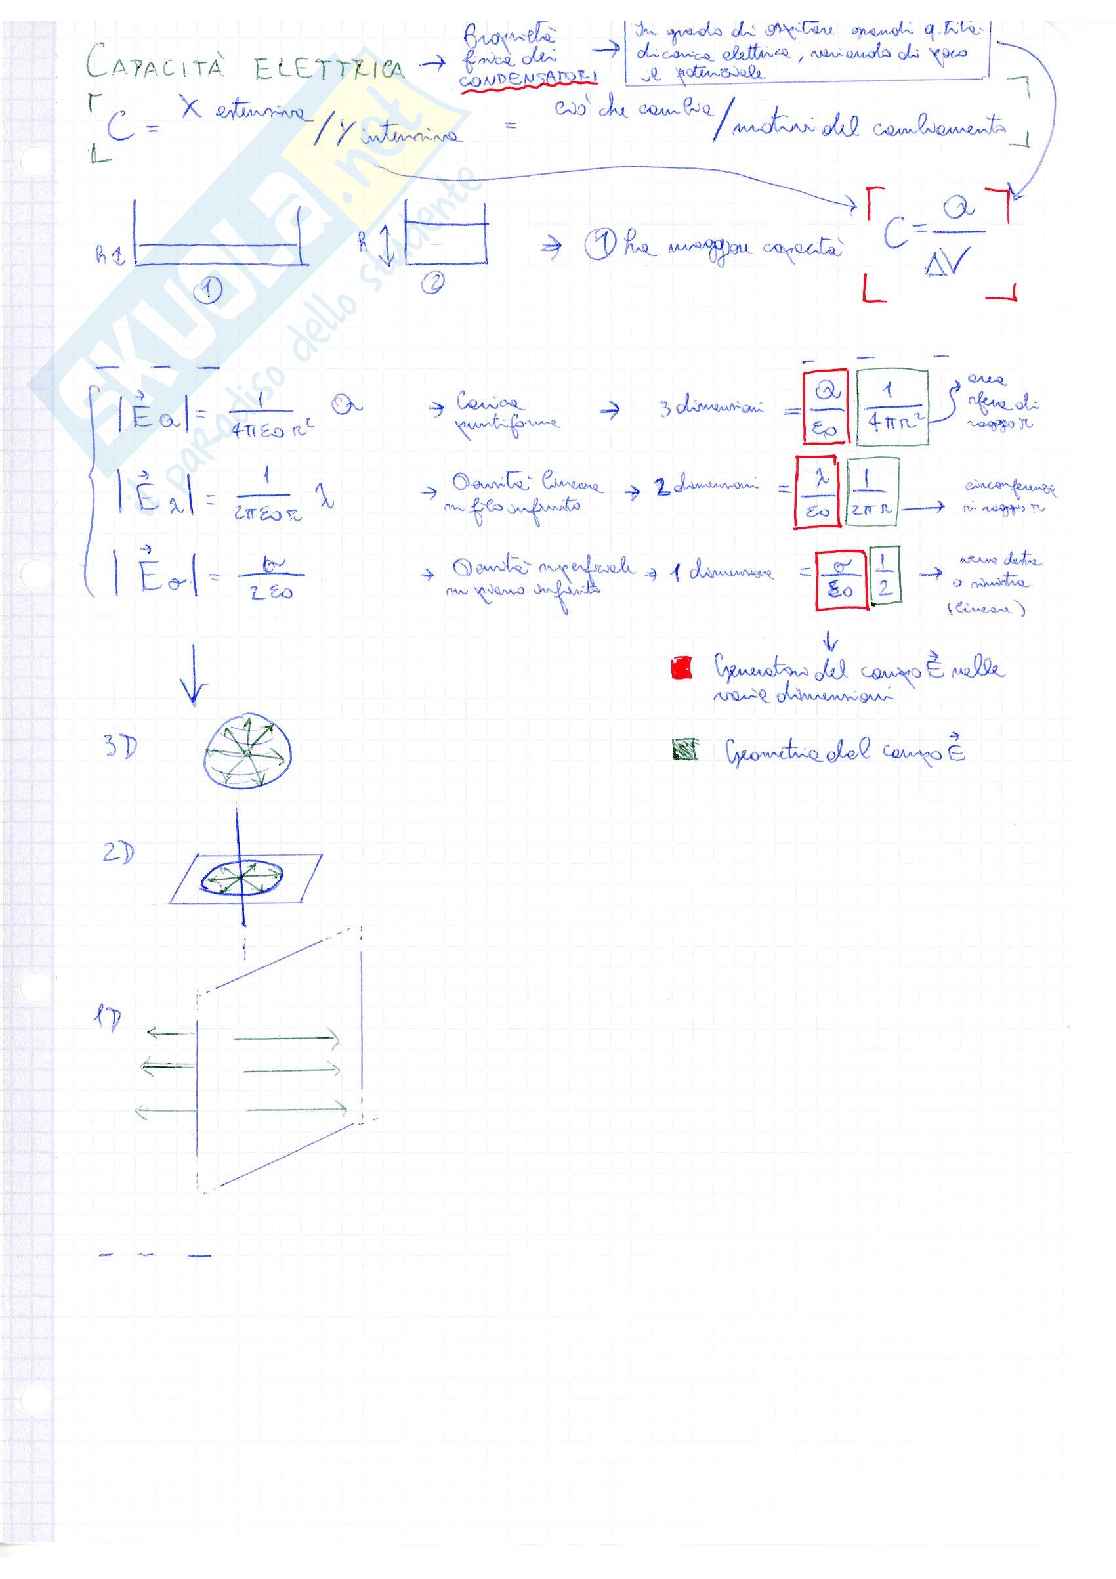 CAPACITÀ ELETTRICA → Proprietà fisica dei CONDENSATORI → In grado di ospitare grandi q.tità di carica elettrica, variando di poco il potenziale
C = X estensiva / Y intensiva = ciò che cambia / motivi del cambiamento
h ① h ② ⇒ ① ha maggiore capacità C = Q / ΔV
|E⃗Q| = 1 / 4πε0r² Q → Carica puntiforme → 3 dimensioni = Q / ε0 1 / 4πr² → area sfera di raggio r
|E⃗λ| = 1 / 2πε0r λ → Densità lineare su filo infinito → 2 dimensioni = λ / ε0 1 / 2πr → circonferenza di raggio r
|E⃗σ| = σ / 2ε0 → Densità superficiale su piano infinito → 1 dimensione = σ / ε0 1 / 2 → verso destra o sinistra (lineare)
Generatori del campo E⃗ nelle
varie dimensioni
3D
Geometria del campo E⃗
2D
1D
SKUOLA.net
il paradiso dello studente